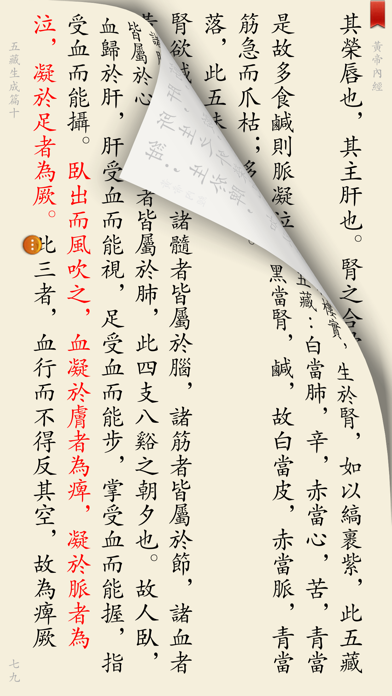 黃帝內經
其榮唇也，其主肝也。腎之合
生於腎，如以縞裹紫，此五藏
五藏：白當肺，辛，赤當心，苦，青當
是故多食鹹則脈凝泣
黑當腎，鹹，故白當皮，赤當脈，青當
筋急而爪枯；多
落，此五味
腎欲鹹
諸髓者皆屬於腦，諸筋者皆屬於節，諸血者
皆屬於心
者皆屬於肺，此四支八谿之朝夕也。故人臥，
血歸於肝，肝受血而能視，足受血而能步，掌受血而能握，指
受血而能攝。臥出而風吹之，血凝於膚者為痹，凝於脈者為
泣，凝於足者為厥。此三者，血行而不得反其空，故為痹厥
五藏生成篇十
七九